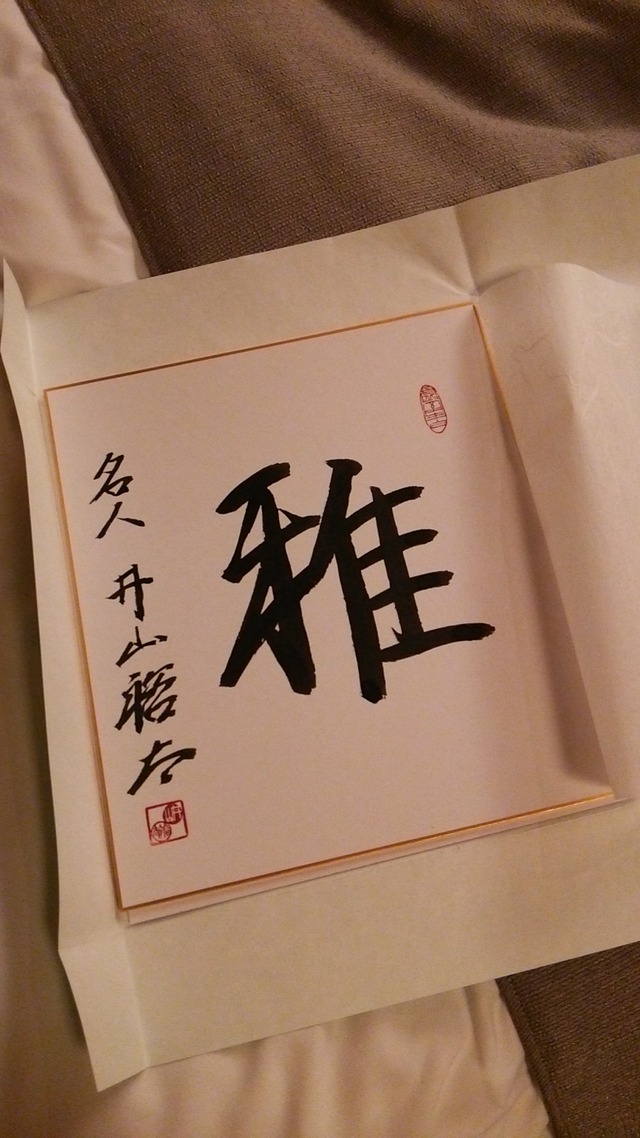 雅
名人 井山裕太